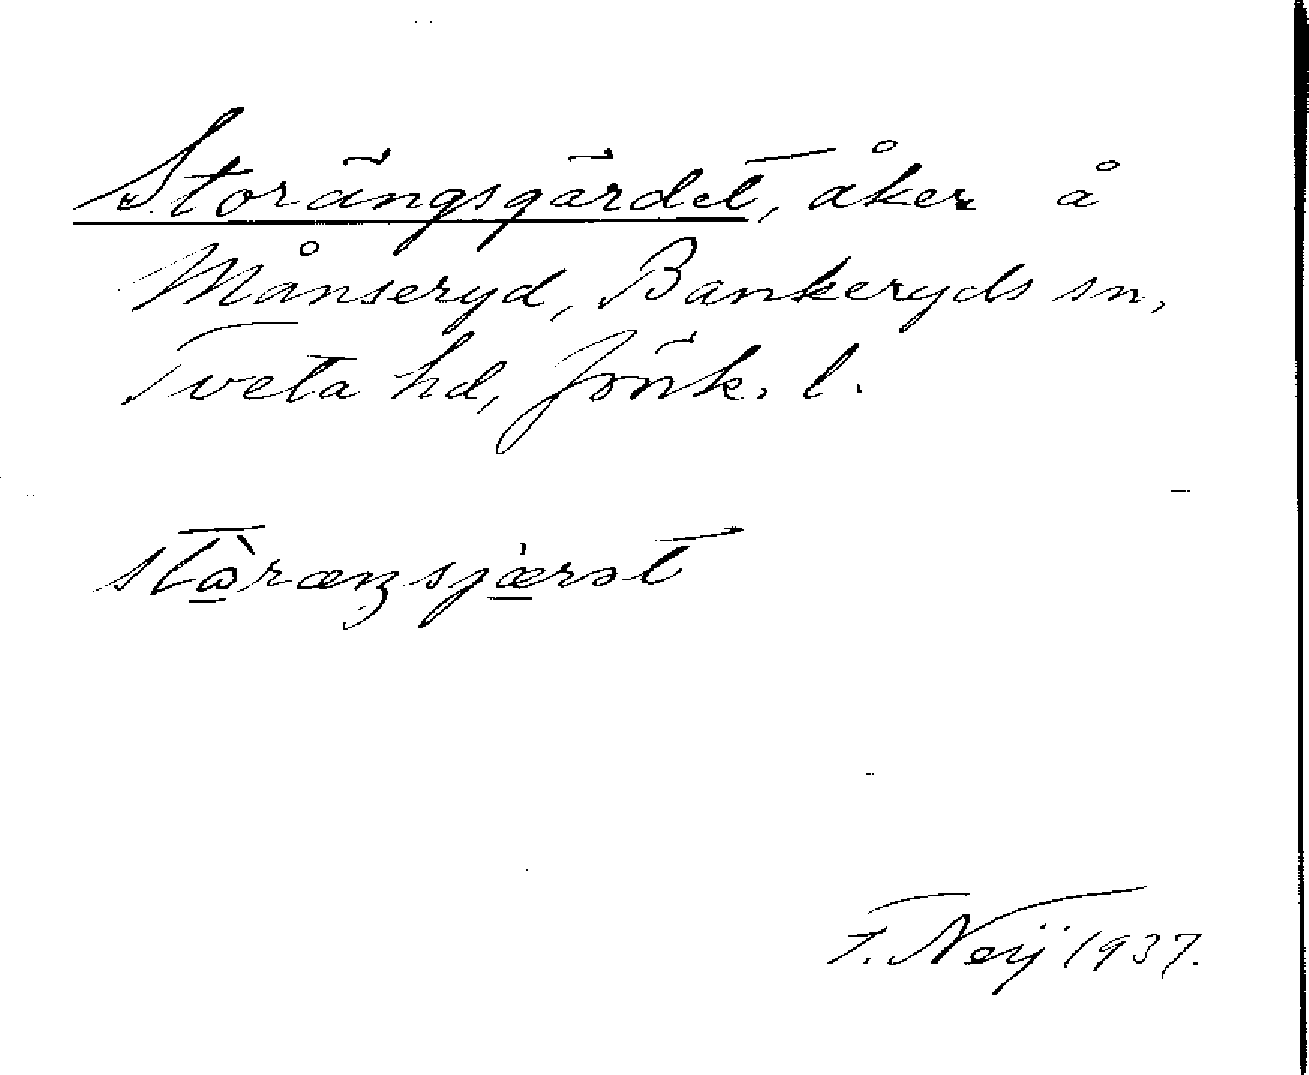 Storängsgärdet, åker å
Månseryd, Bankeryds sn,
Tveta hd, Jönk. l.
stɷ̀ræŋsjæ̀rət
F. Neij 1937.